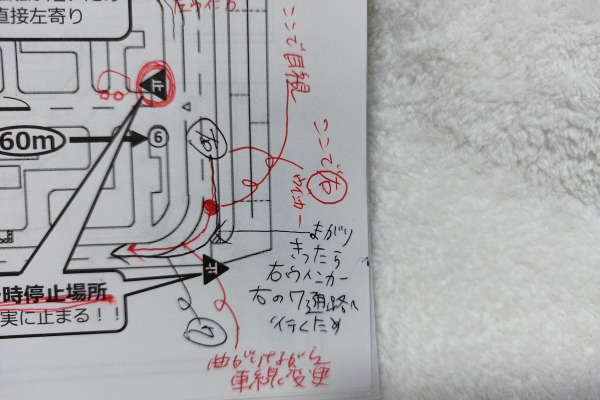 直接左寄り
ここで目線
止
60m
6
ここで右
ウインカー
まがり
きったら
右ウインカー
右の7通路へ
行くため
止
時停止場所
実に止まる！！
曲がりながら
車線変更